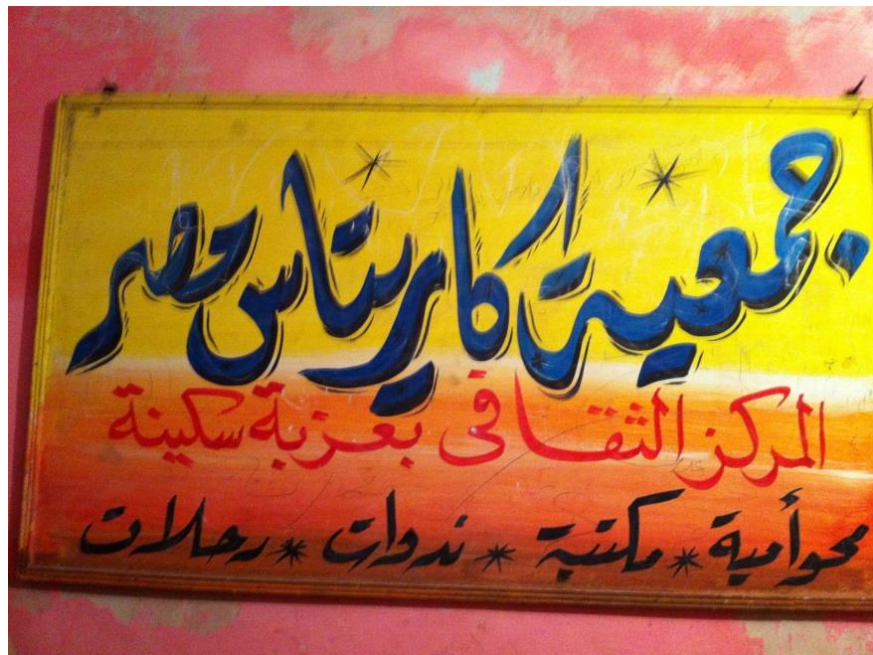 جمعية كاريتاس مصر
المركز الثقافى بعزبة سكينة
محو أمية * مكتبة * ندوات * رحلات